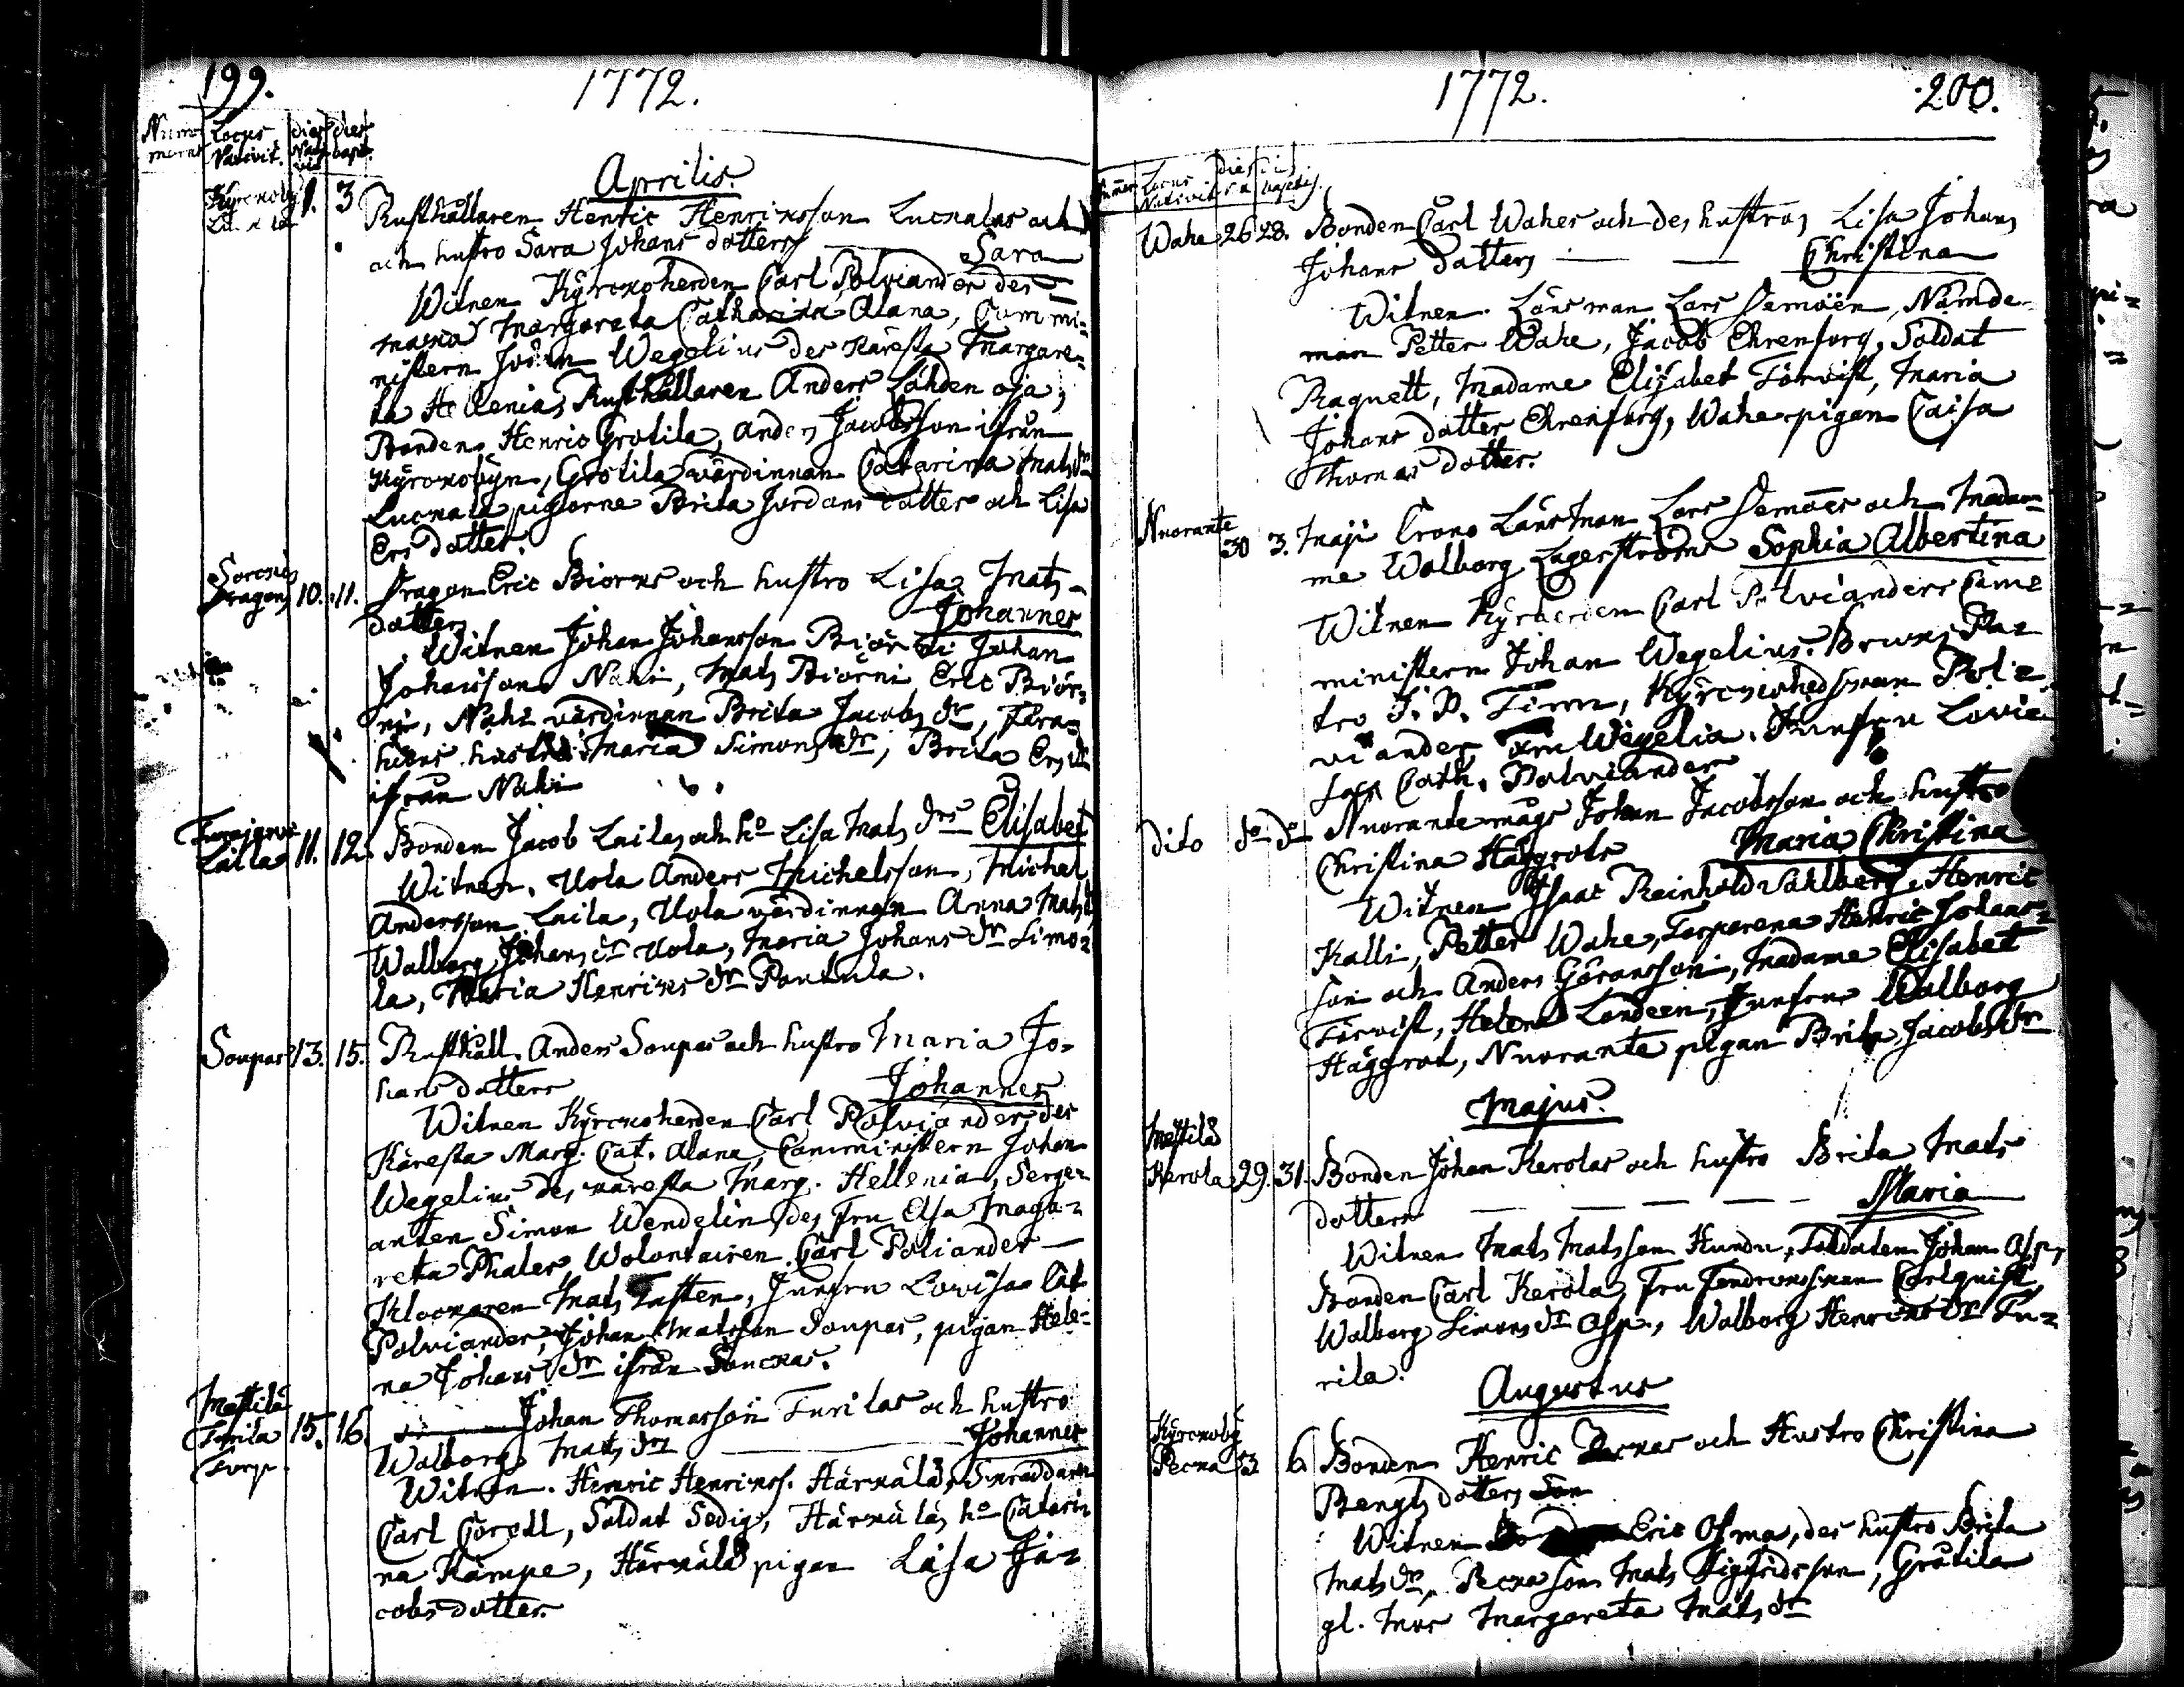 199.
1772.
Nume-
merus
Locus
Nativit.
dies
Nati
vit
dies
bapt.
Aprilis.
Kyrckoby
1. 3 Rusthållaren Henric Henricsson Luckalas och
och hustro Sara Johans dotters Sara
Witnen Kyrckoherden Carl Polviander des
Margareta Catharina Alana, Commi=
nistern Johan Wegelius des käresta Margare=
ta Hellenia, Rusthållaren Anders Lähden oja,
Bonden Henric Grotila, Anders Jacobsson ifrån
Kyrckobyn, Grotila värdinnan Catarina Mats dr
Luckala pigorne Brita Jordans dotter och Lisa
Ers dotter.
Dragon 10. 11. Dragon Eric Biorns och hustro Lisa Mats-
dotters Johannes
Witnen Johan Johansson Biörni Johan
Johansson Nahi, Mats Biörni Eric Biör-
ni, Nahi värdinnan Brita Jacobs dr,
hustro Maria Simons dr, Brita Ers dr
ifrån Nahi
Laila 11. 12. Bonden Jacob Lailas och ho Lisa Mats drs Elisabet
Witnen. Uola Anders Michelsson, Michel
Andersson Laila, Uola värdinnan Anna Mats dr
Walborg Johans dr Uola, Maria Johans dr Simo=
la, Maria Henrics dr Pentula.
Soupas 13. 15. Rusthåll. Anders Soupas och hustro Maria Jo-
hans dotters Johannes
Witnen Kyrckoherden Carl Polviander, des
Käresta Marg. Cat. Alana, Comministern Johan
Wegelius des käresta Marg. Hellenia, Serge-
anten Simon Wendelin des Fru Elsa Maga-
reta Phaler Wolontairen Carl Poliander
Klockaren Mats Tasten, Junfru Lovisa Cat
Polviander, Johan Matsson Soupas, pigan Hele-
na Johans dr ifrån Sonckas.
Mestilä
Furila
Torp.
15. 16. Johan Thomasson Furilas och hustro
Walborg Mats drs Johannes
Witnen. Henric Henricss. Härkälä, Skräddaren
Carl Corell, Soldat Sedig, Härkäläs ho Catari-
na Kämpe, Härkälä pigan Lisa Ja-
cobs dotter.
1772.
200.
Numer
Locus
Nativit
dies
baptis.
Wahe 26 28. Bonden Carl Wahes och des hustros Lisa Johans
Johans dotters Christina
Witnen. Länsman Lars Demoën, Nämde-
man Petter Wahe, Jacob Ehrenforg, Soldat
Raquett, Madame Elisabet Törvist, Maria
Johans dotter Ehrenforg, Wahe pigan Caisa
Thomas dotter.
Nuorante
30 3. Maji Crono Länsman Lars Demöes och Mada=
me Walborg Lagerströms Sophia Albertina
Witnen Kyrherden Carl Polviander Came
ministern Johan Wegelius. Brucks Pa=
tro J. D. Timm, Kyrckioherdsman Pol=
viander Fru Wegelia. Junfru Lovi=
sa Cath. Polviander
Dito do do Nuorante mågs Johan Jacobsson och hustro
Christina Häggrots Maria Christina
Witnen Isaac Reinhold Sahlberg, Henric
Kalli, Petter Wahe, Torparena Henric Johans=
son och Anders Göransson, Madame Elisabet
Törvist, Helena Londeen, Junfru Walborg
Häggrot, Nuorante pigan Brita Jacobs dr
Majus.
Mestilä
Kerola 29. 31. Bonden Johan Kerolas och hustro Brita Mats
dotters Maria
Witnen Mats Matsson Hundu, Soldaten Johan Asp,
Bonden Carl Kerola, Fru Carlquist,
Walborg Simons dr Asp., Walborg Henrics dr Fu=
rila.
Augustus
Kyrckoby
Pecka 3 6. Bonden Henric Peckas och Hustro Christina
Bengts dotters Son
Witnen Eric Osma, des hustro Brita
Mats dr, Pecka son Mats Sigfridsson, Gråtila
gl. mor Margareta Mats dr